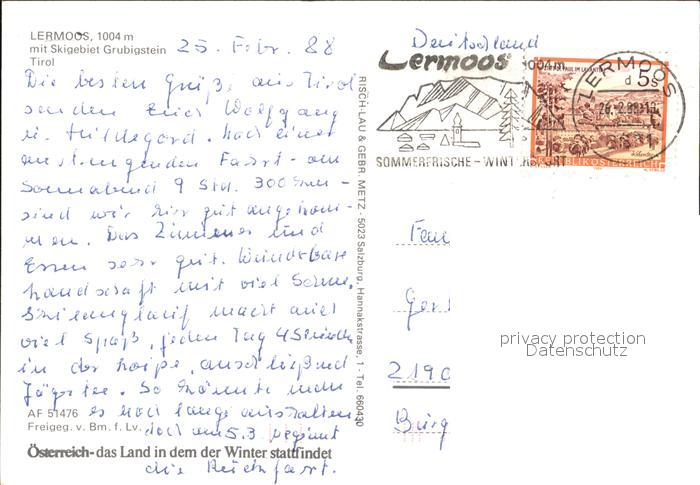 LERMOOS, 1004 m
mit Skigebiet Grubigstein
Tirol
25. Febr. 88
Die besten Grüße aus Tirol
senden Euch Wolfgang
u. Hildegard. Nach einer
anstrengenden Fahrt - am
Sonnabend 9 Std. 300 km -
sind wir hier gut angekom-
men. Das Zimmer und
Essen sehr gut. Wunderbare
Landschaft mit viel Sonne,
Skilanglauf macht auch
viel Spaß, jeden Tag 4 Stunden
in der Loipe, anschließend
Jägertee. So könnte man
es noch lange aushalten
doch am 5.3. beginnt
die Rückfahrt.
AF 51476
Freigeg. v. Bm. f. Lv.
Österreich - das Land in dem der Winter stattfindet
RISCH-LAU & GEBR. METZ - 5023 Salzburg, Hannakstrasse, 1 - Tel. 660430
Deutschland
Lermoos 1004m
SOMMERFRISCHE - WINTERSPORT
LERMOOS
5s
REPUBLIK ÖSTERREICH
Fam
Ger
2190
privacy protection
Datenschutz